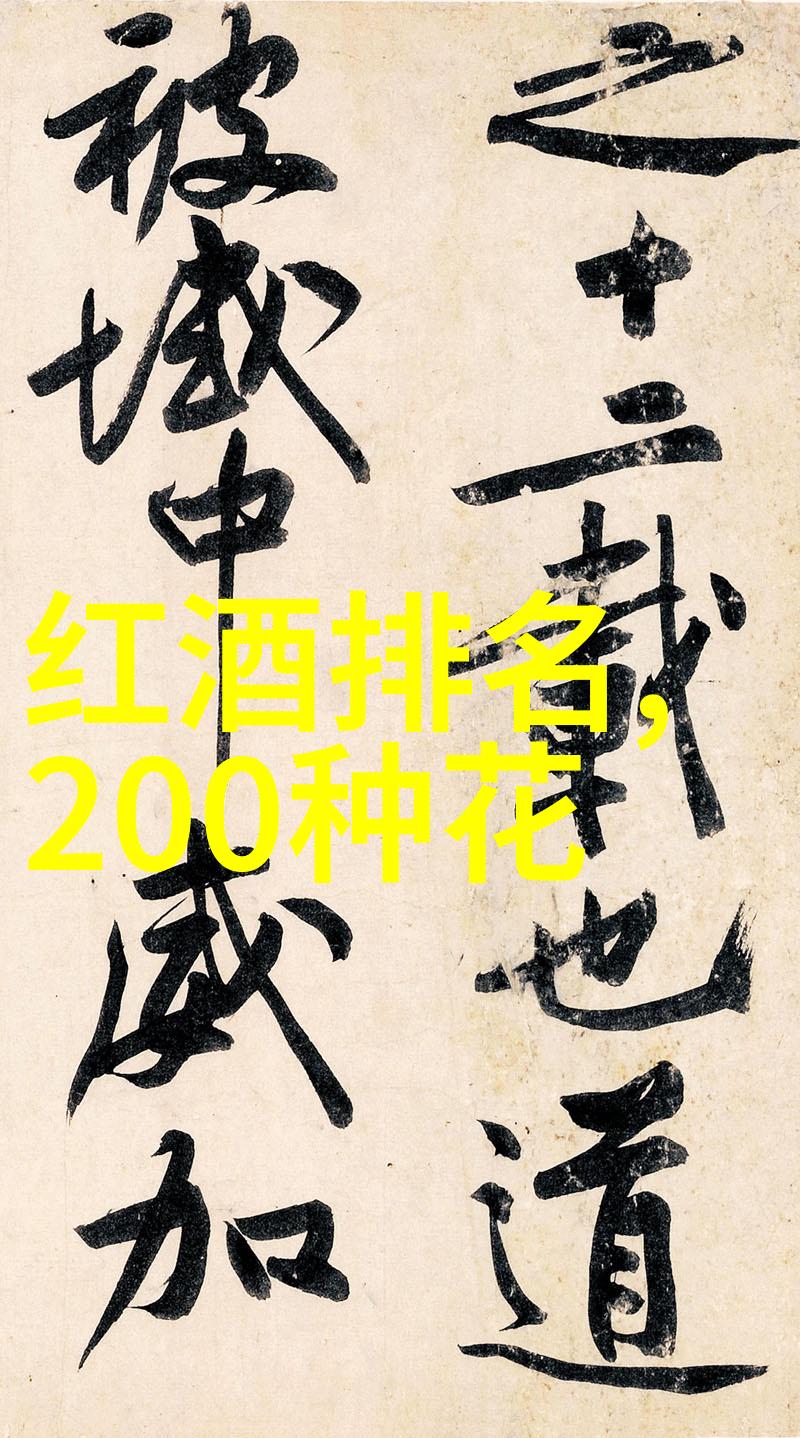 之十二載也道
被域中威加
红酒排名，
200种花